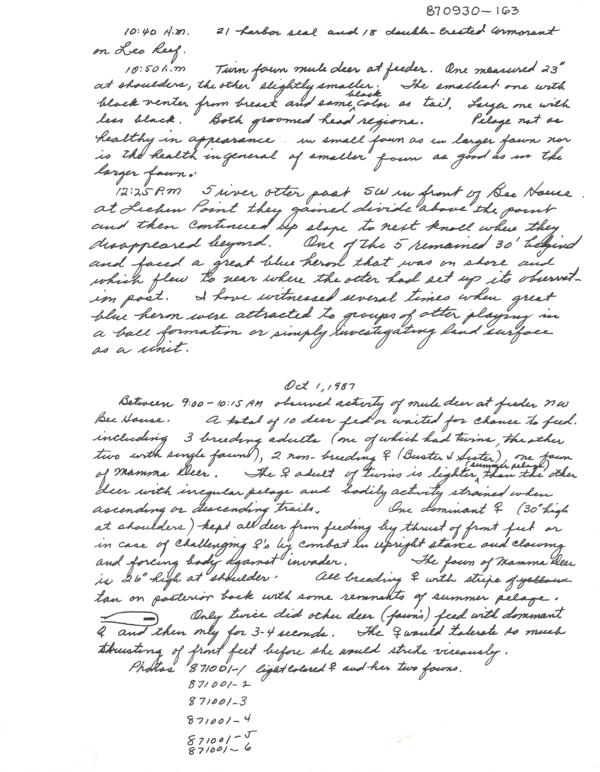 870930-163
10:40 A.M. 21 harbor seal and 18 double-crested cormorant
on Leo Reef.
10:50 A.M Twin fawn mule deer at feeder. One measured 23"
at shoulders, the other slightly smaller. The smallest one with
black venter from breast and same black color as tail, larger one with
less black. Both groomed head regions. Pelage not as
healthy in appearance in small fawn as in larger fawn nor
is the health in general of smaller fawn as good as in the
larger fawn.
12:25 PM 5 river otter past SW in front of Bee House.
At Lichen Point they gained divide above the point
and then continued up slope to next knoll where they
disappeared beyond. One of the 5 remained 30' behind
and faced a great blue heron that was on shore and
which flew to near where the otter had set up its observat-
ion post. I have witnessed several times when great
blue heron were attracted to groups of otter playing in
a ball formation or simply investigating land surface
as a unit.
Oct 1, 1987
Between 9:00-10:15 AM observed activity of mule deer at feeder NW
Bee House. A total of 10 deer fed or waited for chance to feed.
including 3 breeding adults (one of which had twins, the other
two with single fawns), 2 non-breeding ♀ (Buster & Sister), one fawn
of Mamma Deer. The ♀ adult of twins is lighter (summer pelage) than the other
deer with irregular pelage and bodily activity strained when
ascending or descending trails. One dominant ♀ (30" high
at shoulders) kept all deer from feeding by thrust of front feet or
in case of challenging ♀'s by combat in upright stance and clawing
and forcing body against invader. The fawn of Mamma Deer
is 26" high at shoulder. All breeding ♀ with stripe of yellow
tan on posterior back with some remnants of summer pelage.
Only twice did other deer (fawns) feed with dominant
♀ and then only for 3-4 seconds. The ♀ would tolerate so much
thrusting of front feet before she would strike viceously.
Photos 871001-1 light colored ♀ and her two fawns.
871001-2
871001-3
871001-4
871001-5
871001-6